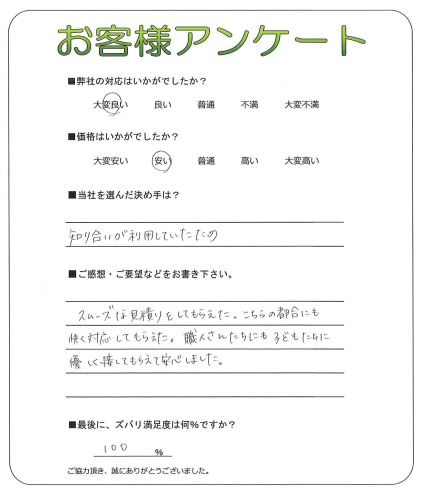 お客様アンケート
■弊社の対応はいかがでしたか？
大変良い 良い 普通 不満 大変不満
■価格はいかがでしたか？
大変安い 安い 普通 高い 大変高い
■当社を選んだ決め手は？
知り合いが利用していたたの
■ご感想・ご要望などをお書き下さい。
スムーズな見積りをしてもらえた。こちらの都合にも
快く対応してもらえた。職人さんたちにも子どもたちに
優しく接してもらえて安心しました。
■最後に、ズバリ満足度は何％ですか？
100 ％
ご協力頂き、誠にありがとうございました。